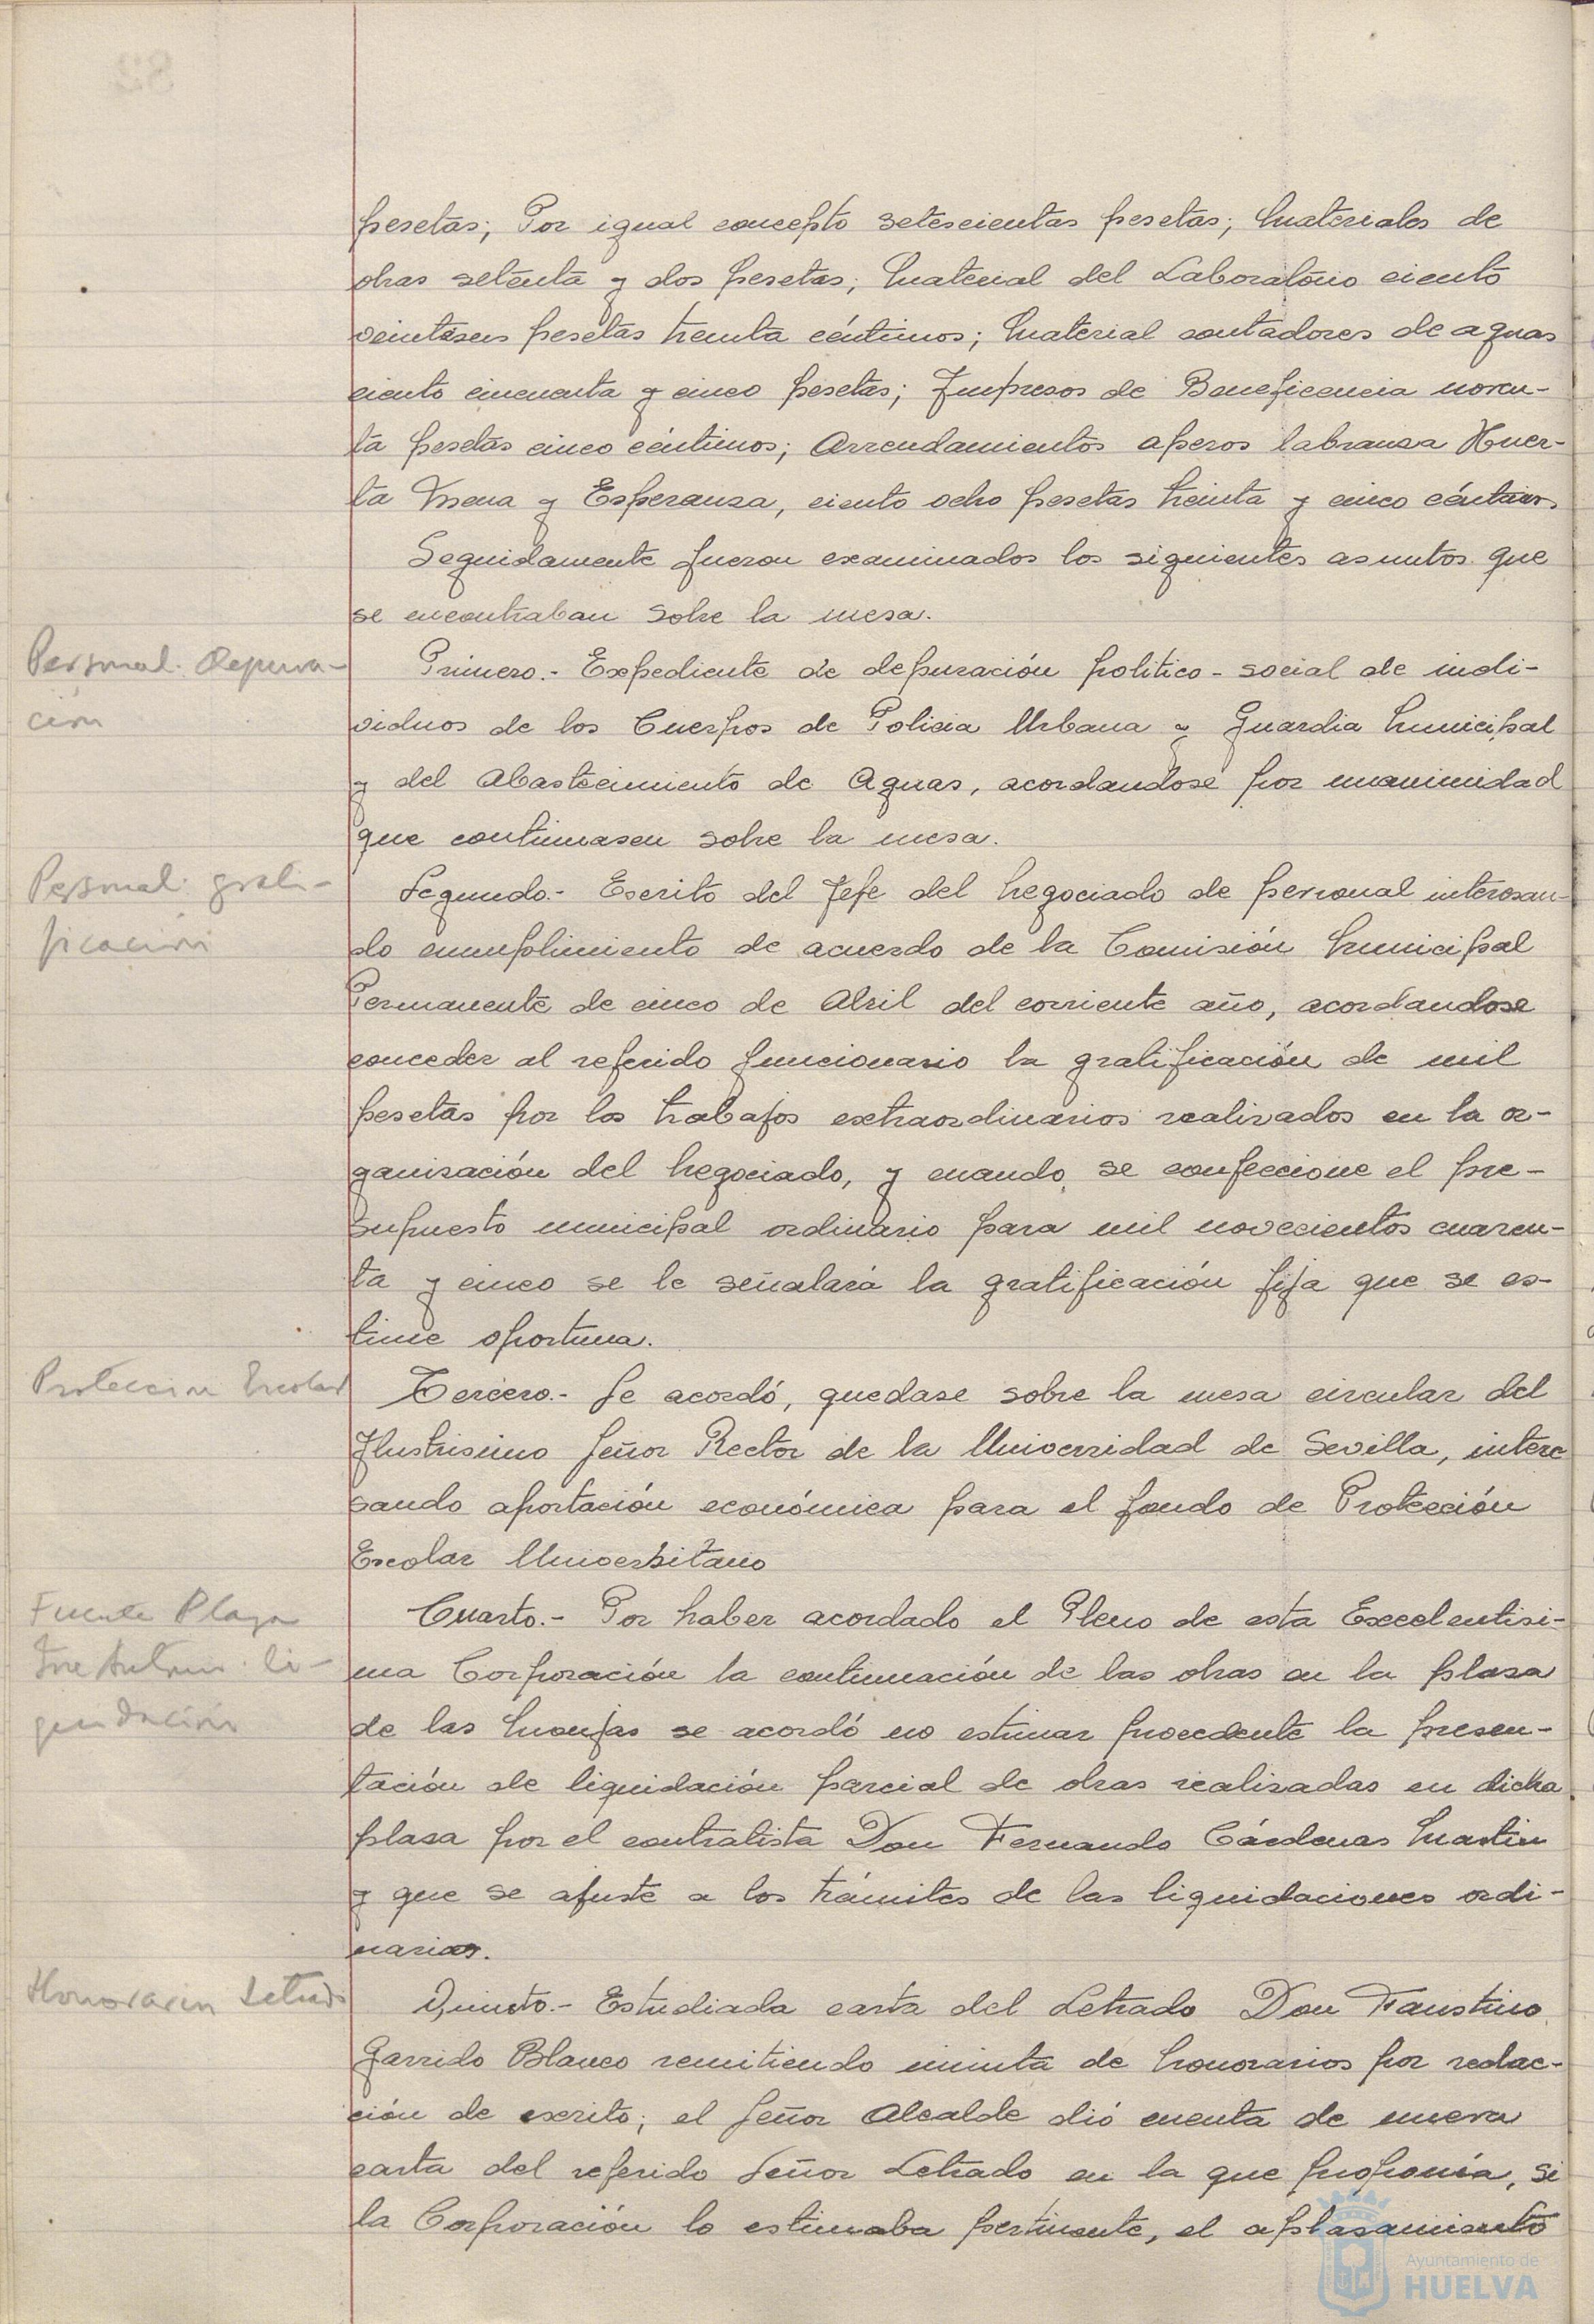 pesetas; Por igual concepto setescientas pesetas; Materiales de
obras setenta y dos pesetas; Material del Laboratorio ciento
veintiseis pesetas treinta céntimos; Material contadores de aguas
ciento cincuenta y cinco pesetas; Impresos de Beneficencia noven-
ta pesetas cinco céntimos; Arrendamientos aperos labranza Huer-
ta Mena y Esperanza, ciento ocho pesetas treinta y cinco céntimos.
Seguidamente fueron examinados los siguientes asuntos que
se encontraban sobre la mesa.
Personal. Depura-
ción
Primero.- Expediente de depuración politico-social de indi-
viduos de los Cuerpos de Policia Urbana y Guardia Municipal
y del Abastecimiento de Aguas, acordandose por unanimidad
que continuasen sobre la mesa.
Personal. grati-
ficación
Segundo.- Escrito del Jefe del Negociado de personal interesan-
do cumplimiento de acuerdo de la Comisión Municipal
Permanente de cinco de Abril del corriente año, acordandose
conceder al referido funcionario la gratificación de mil
pesetas por los trabajos extraordinarios realizados en la or-
ganización del Negociado, y cuando se confeccione el pre-
supuesto municipal ordinario para mil novecientos cuaren-
ta y cinco se le señalará la gratificación fija que se es-
time oportuna.
Protección Escolar
Tercero.- Se acordó, quedase sobre la mesa circular del
Ilustrisimo Señor Rector de la Universidad de Sevilla, intere
sando aportación económica para el fondo de Protección
Escolar Universitario
Fuente Plaza
Jose Antonio. li-
quidación
Cuarto.- Por haber acordado el Pleno de esta Excelentisi-
ma Corporación la continuación de las obras en la plaza
de las Monjas se acordó no estimar procedente la presen-
tación de liquidación parcial de obras realizadas en dicha
plaza por el contratista Don Fernando Cárdenas Martin
y que se ajuste a los trámites de las liquidaciones ordi-
narias.
Honorarios Letrado
Quinto.- Estudiada carta del Letrado Don Faustino
Garrido Blanco remitiendo minuta de honorarios por redac-
ción de escrito; el Señor Alcalde dió cuenta de nueva
carta del referido Señor Letrado en la que proponía, si
la Corporación lo estimaba pertinente, el aplazamiento
Ayuntamiento de
HUELVA